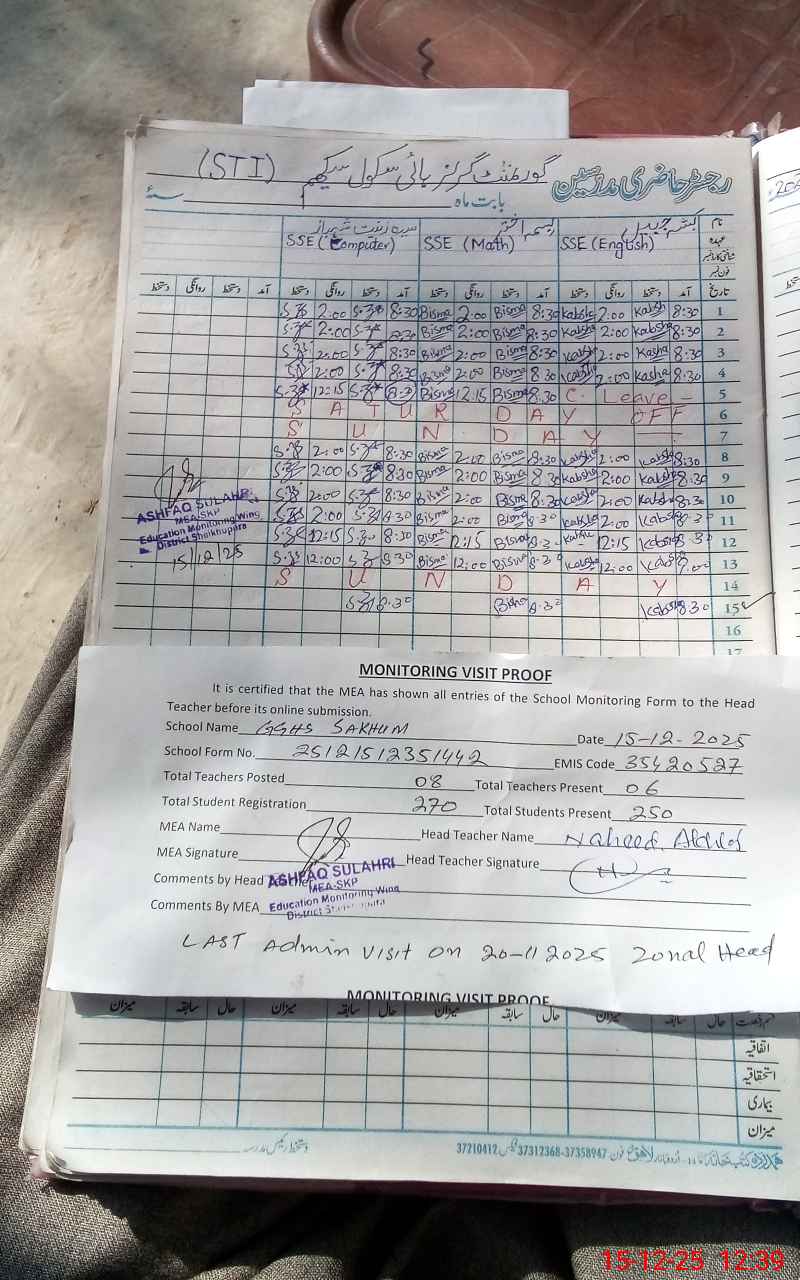 رجسٹر حاضری مدرسین گورنمنٹ گرلز ہائی سکول سیکھم (STI)
بابت ماہ سنہ
نام
عہدہ SSE (English) SSE (Math) SSE (Computer)
تاریخ آمد دستخط روانگی دستخط آمد دستخط روانگی دستخط آمد دستخط روانگی دستخط آمد دستخط روانگی دستخط
1 8:30 Kabsha 2:00 Kabsha 8:30 Bisma 2:00 Bisma 8:30 2:00
2 8:30 Kabsha 2:00 Kabsha 8:30 Bisma 2:00 Bisma 8:30 2:00
3 8:30 Kasha 2:00 Kabsha 8:30 Bisma 2:00 Bisma 8:30 2:00
4 8:30 Kasha 2:00 Kabsha 8:30 Bisma 2:00 Bisma 8:30 2:00
5 C. Leave 8:30 Bisma 12:15 Bisma 8:30 12:15
6 SATURDAY OFF
7 SUNDAY
8 8:30 Kabsha 2:00 Kabsha 8:30 Bisma 2:00 Bisma 8:30 2:00
9 8:30 Kabsha 2:00 Kabsha 8:30 Bisma 2:00 Bisma 8:30 2:00
10 8:30 Kabsha 2:00 Kabsha 8:30 Bisma 2:00 Bisma 8:30 2:00
11 8:30 Kabsha 2:00 Kabsha 8:30 Bisma 2:00 Bisma 8:30 2:00
12 8:30 Kabsha 12:15 8:30 Bisma 12:15 Bisma 8:30 12:15
13 9:00 Kabsha 12:00 Kabsha 8:30 Bisma 12:00 Bisma 8:30 12:00
14 SUNDAY
15 8:30 Kabsha 8:30 Bisma 8:30
16
17
ASHFAQ SULAHRI
MEA-SKP
Education Monitoring Wing
District Sheikhupura
15/12/25
MONITORING VISIT PROOF
It is certified that the MEA has shown all entries of the School Monitoring Form to the Head
Teacher before its online submission.
School Name GGHS SAKHUM Date 15-12-2025
School Form No. 25121512351442 EMIS Code 35420527
Total Teachers Posted 08 Total Teachers Present 06
Total Student Registration 270 Total Students Present 250
MEA Name Head Teacher Name Naheed
MEA Signature Head Teacher Signature
Comments by Head
Comments By MEA
ASHFAQ SULAHRI
MEA-SKP
Education Monitoring Wing
District
LAST Admin visit on 20-11 2025 Zonal Head
MONITORING VISIT PROOF
حال سابقہ میزان حال سابقہ میزان حال سابقہ میزان حال سابقہ میزان
اتفاقیہ
استحقاقیہ
بیماری
میزان
37358947-37312368 فیکس 37210412
15-12-25 12:39